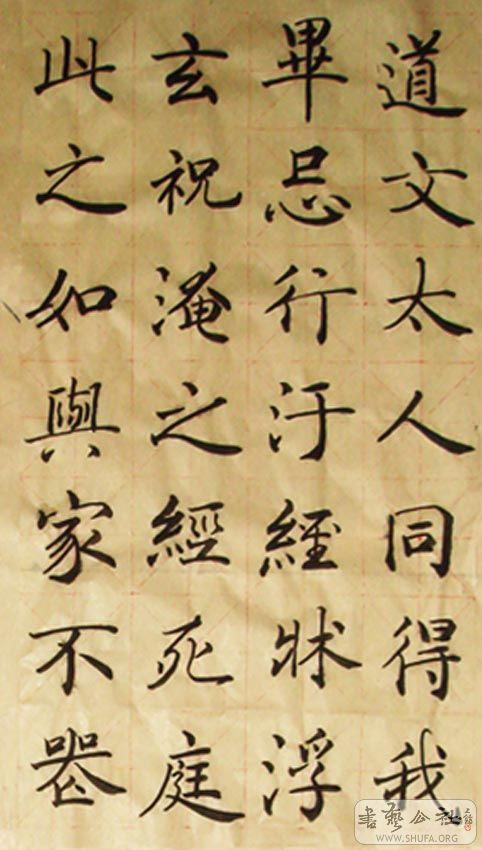 道文太人同得我
畢忌行汙經狀浮
玄祝淹之經死庭
此之如與家不
書藝公社
WWW.SHUFA.ORG